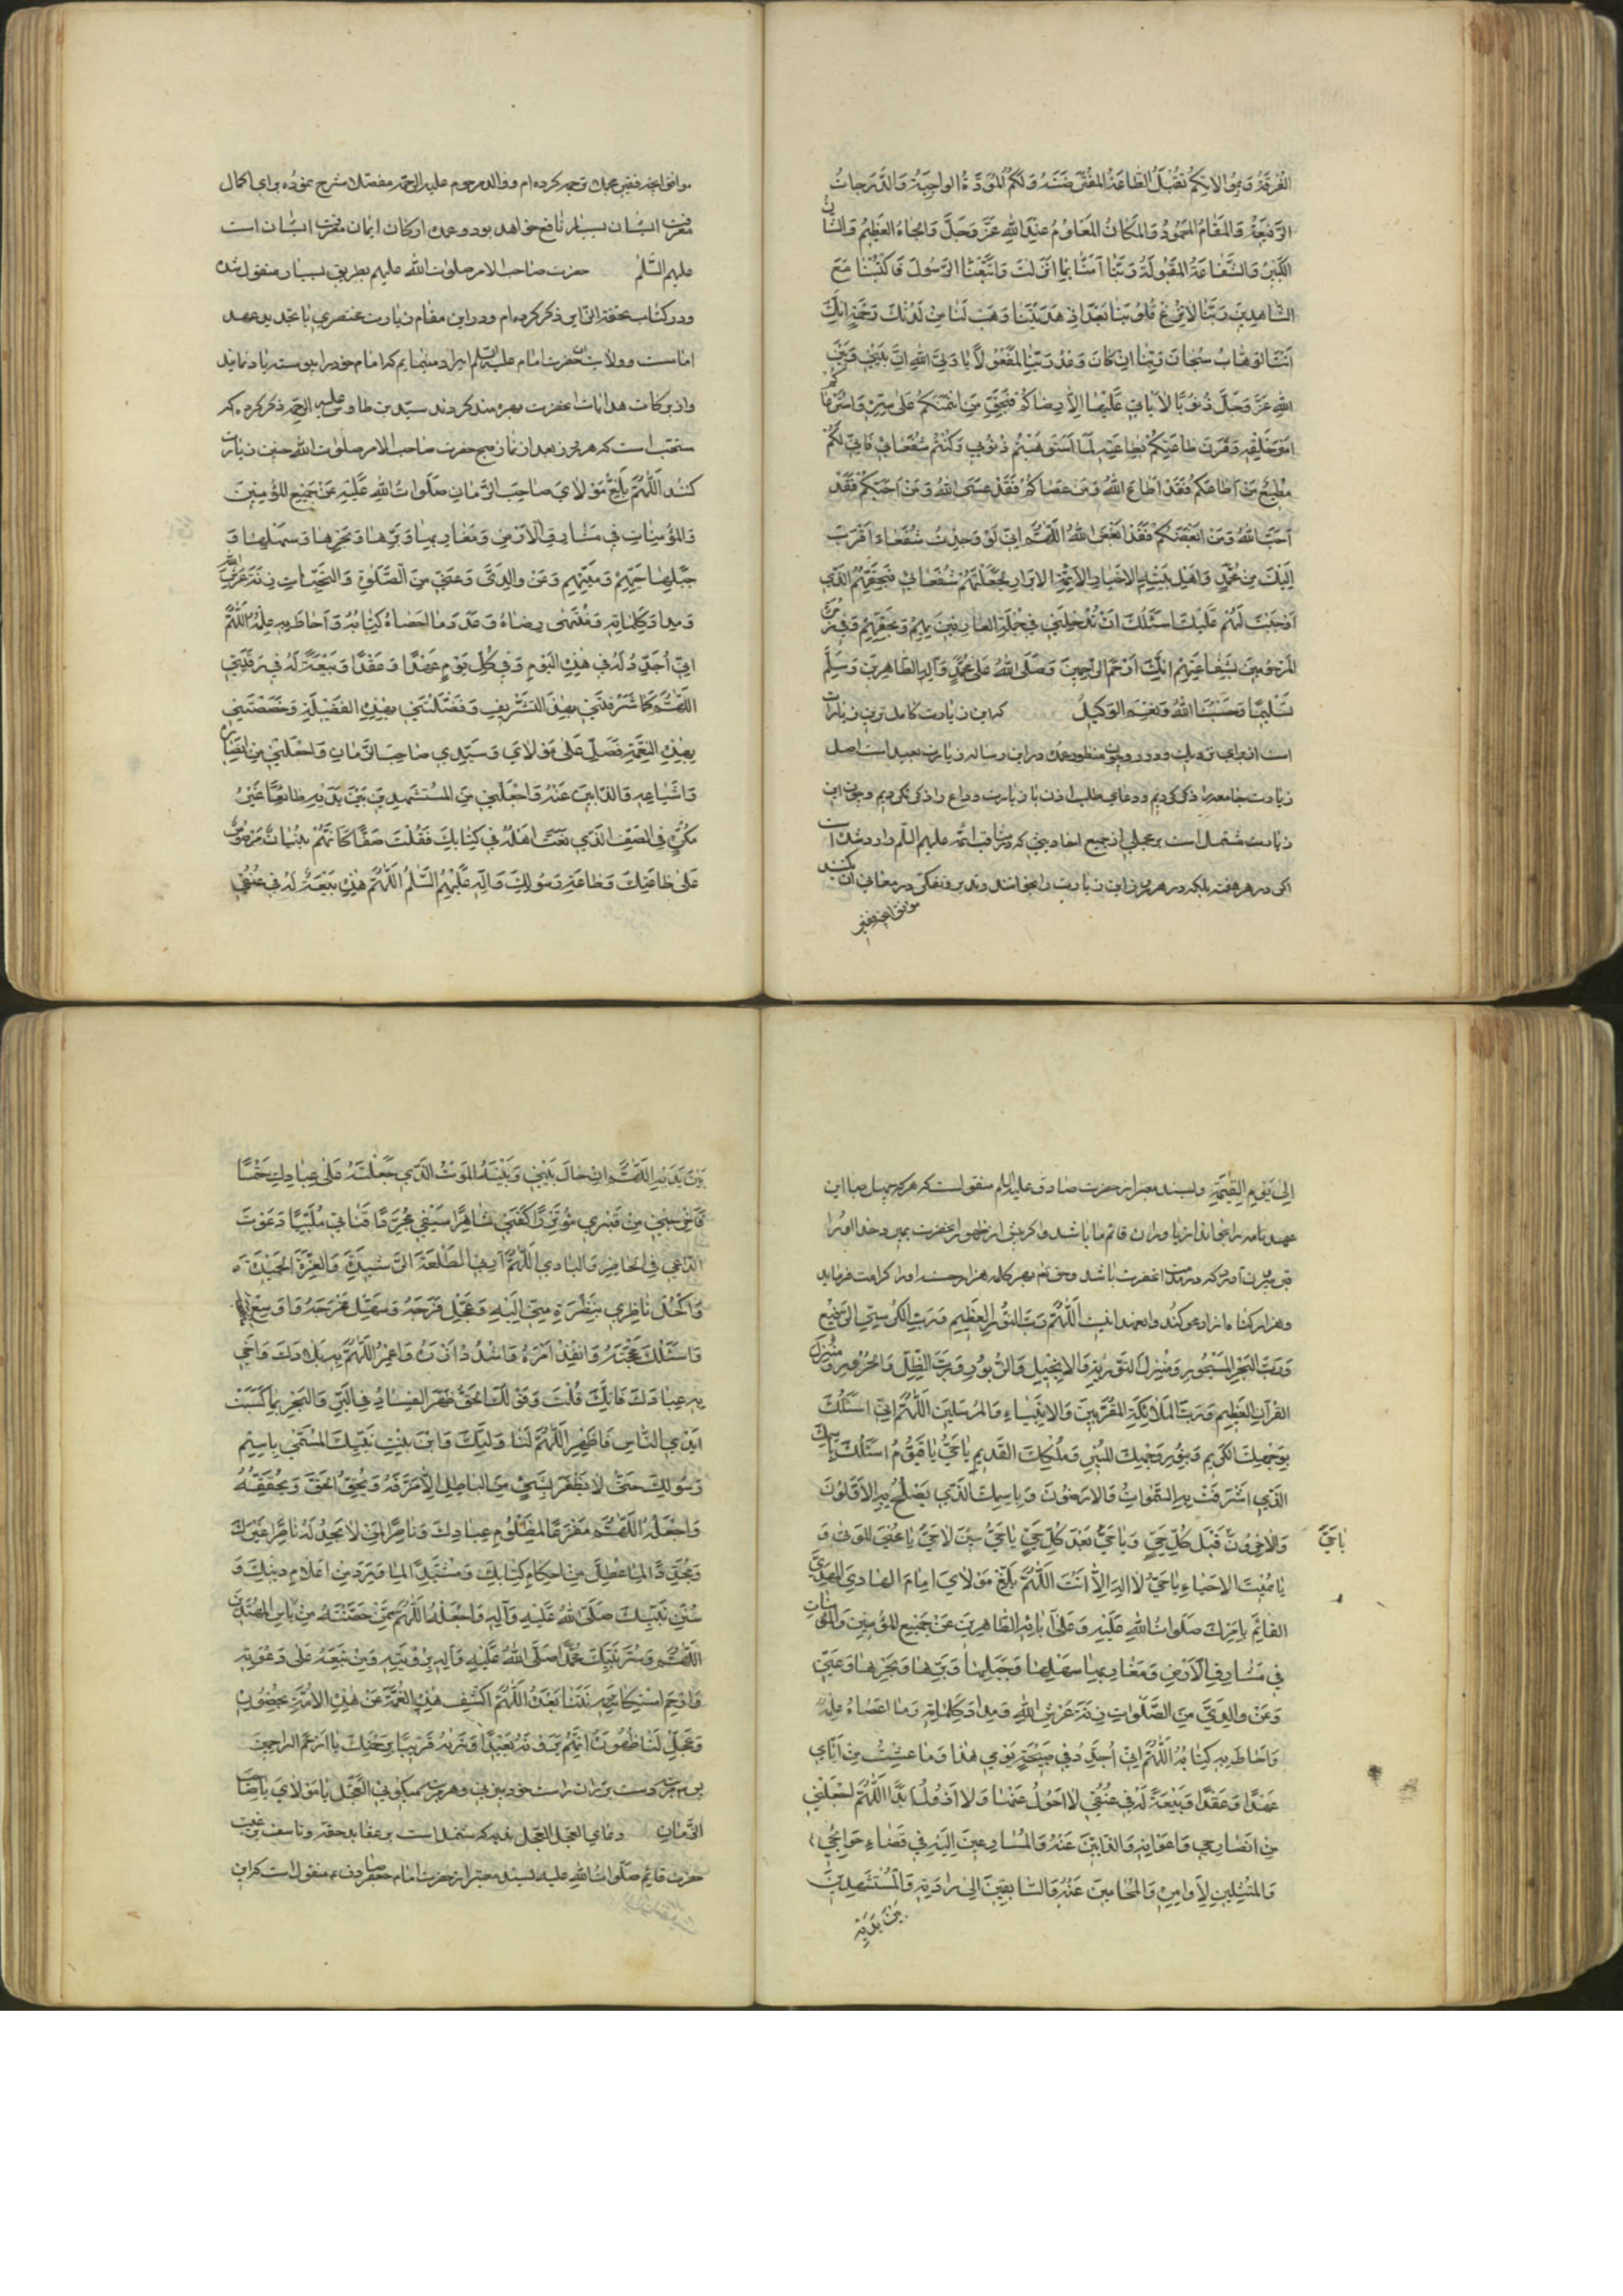 المفترضة وبموالاتكم تقبل الطاعة المفترضة ولكم المودة الواجبة والدرجات
الرفيعة والمقام المحمود والمكان المعلوم عند الله عز وجل والجاه العظيم والشان
الكبير والشفاعة المقبولة ربنا آمنا بما انزلت واتبعنا الرسول فاكتبنا مع
الشاهدين ربنا لا تزغ قلوبنا بعد اذ هديتنا وهب لنا من لدنك رحمة انك
انت الوهاب سبحان ربنا ان كان وعد ربنا لمفعولا يا ولي الله ان بيني وبين
الله عز وجل ذنوبا لا ياتي عليها الا رضاكم فبحق من ائتمنكم على سره واسترعاكم
امر خلقه وقرن طاعتكم بطاعته لما استوهبتم ذنوبي وكنتم شفعائي فاني لكم
مطيع من اطاعكم فقد اطاع الله ومن عصاكم فقد عصى الله ومن احبكم فقد
احب الله ومن ابغضكم فقد ابغض الله اللهم اني لو وجدت شفعاء اقرب
اليك من محمد واهل بيته الاخيار الائمة الابرار لجعلتهم شفعائي فبحقهم الذي
اوجبت لهم عليك اسئلك ان تدخلني في جملة العارفين بهم وبحقهم وفي زمرة
المرحومين بشفاعتهم انك ارحم الراحمين وصلى الله على محمد وآله الطاهرين وسلم
تسليما وحسبنا الله ونعم الوكيل كه اين زيارت كامل ترين زيارات
است از براي نزديك ودور وچون منظور عمده در اين رساله زيارت بعيد است اصل
زيارت جامعه را ذكر كرديم ودعاي طلب اذن با زيارت وداع را ذكر نكرديم وچون اين
زيارت مشتمل است بر مجملي از جميع احاديثي كه در مناقب ائمه عليهم السلم وارد شده است
اكر در هر هفته بلكه در هر روز اين زيارت را بخوانند وتدبر وتفكر در معاني آن بكنند
موافق آنچه فقير
موافق آنچه فقير مجملا ترجمه كرده ام ووالد مرحوم عليه الرحمه مفصلا شرح نموده براي كمال
معرفت ايشان بسيار نافع خواهد بود وعمده اركان ايمان معرفت ايشان است
عليهم السلم حضرت صاحب الامر صلوات الله عليهم بطريق بسيار منقول شده
ودر كتاب تحفة الزاير ذكر كرده ام ودر اين مقام زيارت مختصري با تجديد عهد
امامت وولايت آنحضرت امام عليه السلم ايراد مينمايم كه امام خود را پيوسته ياد نمايند
واز بركات هدايات آنحضرت بهره مند كردند سيد بن طاوس عليه الرحمه ذكر كرده كه
مستحب است كه هر روز بعد از نماز صبح حضرت صاحب الامر صلوات الله چنين زيارت
كنند اللهم بلغ مولاي صاحب الزمان صلوات الله عليه عن جميع المؤمنين
والمؤمنات في مشارق الارض ومغاربها وبرها وبحرها وسهلها و
جبلها حيهم وميتهم وعن والدي وعني من الصلوة والتحيات زنة عرش الله
ومداد كلماته ومنتهى رضاه وعدد ما احصاه كتابه واحاط به علمه اللهم
اني اجدد له في هذا اليوم وفي كل يوم عهدا وعقدا وبيعة له في رقبتي
اللهم كما شرفتني بهذا التشريف وفضلتني بهذه الفضيلة وخصصتني
بهذه النعمة فصل على مولاي وسيدي صاحب الزمان واجعلني من انصاره
واشياعه والذابين عنه واجعلني من المستشهدين بين يديه طائعا غير
مكره في الصف الذي نعت اهله في كتابك فقلت صفا كانهم بنيان مرصوص
على طاعتك وطاعة رسولك وآله عليهم السلم اللهم هذه بيعة له في عنقي
الى يوم القيمة وبسند معتبر از حضرت صادق عليه السلم منقولست كه هر كه چهل صباح اين
عهد نامه را بخواند از ياوران قائم ما باشد واكر پيش از ظهور آنحضرت بميرد خدا او را
قبر بيرون آورد كه در خدمت آنحضرت باشد وحق تعالى بهر كلمه هزار حسنه او را كرامت فرمايد
وهزار كناه از او محو كند وآن عهد اينست اللهم رب النور العظيم ورب الكرسي الرفيع
ورب البحر المسجور ومنزل التورية والانجيل والزبور ورب الظل والحرور ومنزل
القرآن العظيم ورب الملائكة المقربين والانبياء والمرسلين اللهم اني اسئلك
بوجهك الكريم وبنور وجهك المنير وملكك القديم يا حي يا قيوم اسئلك باسمك
الذي اشرقت به السموات والارضون وباسمك الذي يصلح به الاولون
والآخرون يا حي قبل كل حي ويا حي بعد كل حي يا حي حين لا حي يا محيي الموتى و
يا مميت الاحياء يا حي لا اله الا انت اللهم بلغ مولاي امام الهادي المهدي
القائم بامرك صلوات الله عليه وعلى آبائه الطاهرين عن جميع المؤمنين والمؤمنات
في مشارق الارض ومغاربها سهلها وجبلها وبرها وبحرها وعني
وعن والدي من الصلوات زنة عرش الله ومداد كلماته وما احصاه علمه
واحاط به كتابه اللهم اني اجدد في صبيحة يومي هذا وما عشت من ايامي
عهدا وعقدا وبيعة له في عنقي لا احول عنها ولا ازول ابدا اللهم اجعلني
من انصاره واعوانه والذابين عنه والمسارعين اليه في قضاء حوائجه
والممتثلين لاوامره والمحامين عنه والسابقين الى ارادته والمستشهدين
بين يديه
بين يديه اللهم ان حال بيني وبينه الموت الذي جعلته على عبادك حتما
فاخرجني من قبري مؤتزرا كفني شاهرا سيفي مجردا قناتي ملبيا دعوت
الداعي في الحاضر والبادي اللهم ارني الطلعة الرشيدة والغرة الحميدة
واكحل ناظري بنظرة مني اليه وعجل فرجه وسهل مخرجه واوسع منهجه
واسلك محجته وانفذ امره واشدد ازره واعمر اللهم به بلادك واحي
به عبادك فانك قلت وقولك الحق ظهر الفساد في البر والبحر بما كسبت
ايدي الناس فاظهر اللهم لنا وليك وابن بنت نبيك المسمى باسم
رسولك حتى لا يظفر بشيء من الباطل الا مزقه ويحق الحق ويحققه
واجعله اللهم مفزعا لمظلوم عبادك وناصرا لمن لا يجد له ناصرا غيرك
ومجددا لما عطل من احكام كتابك ومشيدا لما ورد من اعلام دينك و
سنن نبيك صلى الله عليه وآله واجعله اللهم ممن حصنته من باس المعتدين
اللهم وسر نبيك محمدا صلى الله عليه وآله برؤيته ومن تبعه على دعوته
وارحم استكانتنا بعده اللهم اكشف هذه الغمة عن هذه الامة بحضوره
وعجل لنا ظهوره انهم يرونه بعيدا ونريه قريبا برحمتك يا ارحم الراحمين
پس سه مرتبه دست بر ران راست خود ميزني وهر مرتبه ميكوئي العجل يا مولاي يا صاحب
الزمان دعاي العجل العجل ندبه كه مشتمل است بر عقايد حقه وتاسف بر غيبت
حضرت قائم صلوات الله عليه بسند معتبر از حضرت امام جعفر صادق ع منقول است كه اين